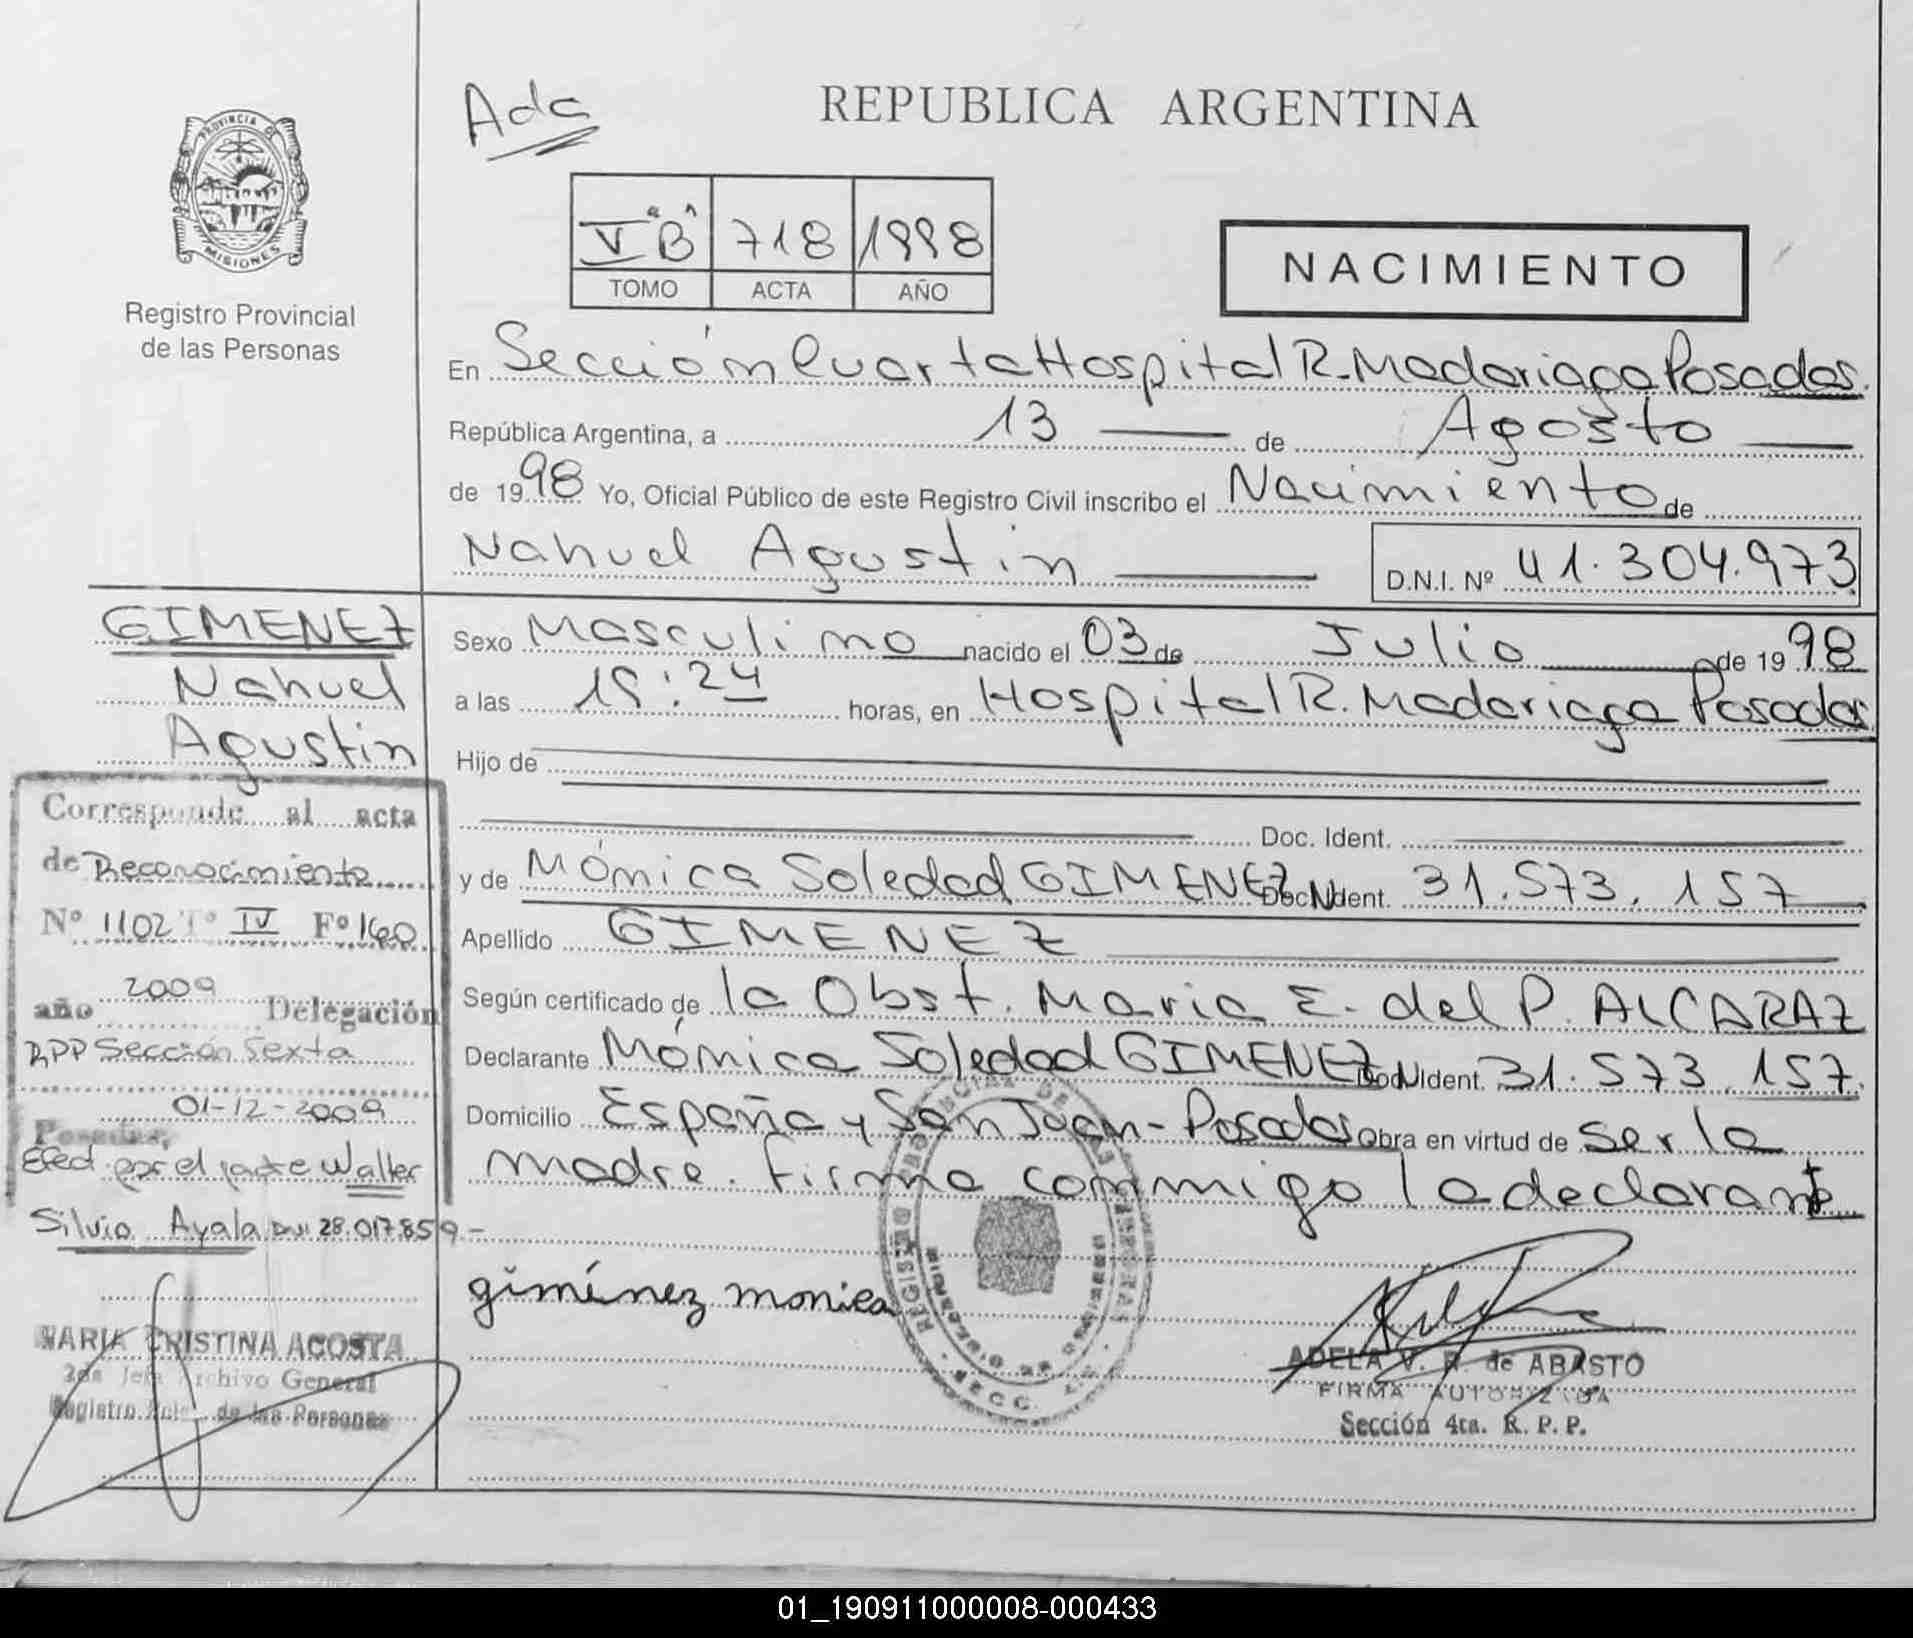 Ada
REPUBLICA ARGENTINA
PROVINCIA DE
MISIONES
Registro Provincial
de las Personas
V "B" 718 1998
TOMO ACTA AÑO
NACIMIENTO
En Sección Cuarta Hospital R. Madariaga Posadas.
República Argentina, a 13 de Agosto
de 1998 Yo, Oficial Público de este Registro Civil inscribo el Nacimiento de
Nahuel Agustin D.N.I. Nº 41.304.973
GIMENEZ
Nahuel
Agustin
Sexo Masculino nacido el 03 de Julio de 1998
a las horas, en Hospital R. Madariaga Posadas
Hijo de
Doc. Ident.
y de Mónica Soledad GIMENEZ Doc. Ident. 31.573.157
Apellido GIMENEZ
Según certificado de la Obst. Maria E. del P. ALCARAZ
Declarante Mónica Soledad GIMENEZ Doc. Ident. 31.573.157.
Domicilio España y San Juan - Posadas Obra en virtud de ser la
madre. Firma conmigo la declarante
Corresponde al acta
de Reconocimiento
Nº 1102 Tº IV Fº 160
año 2009 Delegación
RPP Sección Sexta
01-12-2009
Posadas,
Efect. por el padre Walter
Silvio Ayala DNI 28.017.859.-
giménez monica
MARIA CRISTINA ACOSTA
2da Jefa Archivo General
Registro de las Personas
ADELA V. R. de ABASTO
FIRMA AUTORIZADA
Sección 4ta. R. P. P.
01_190911000008-000433